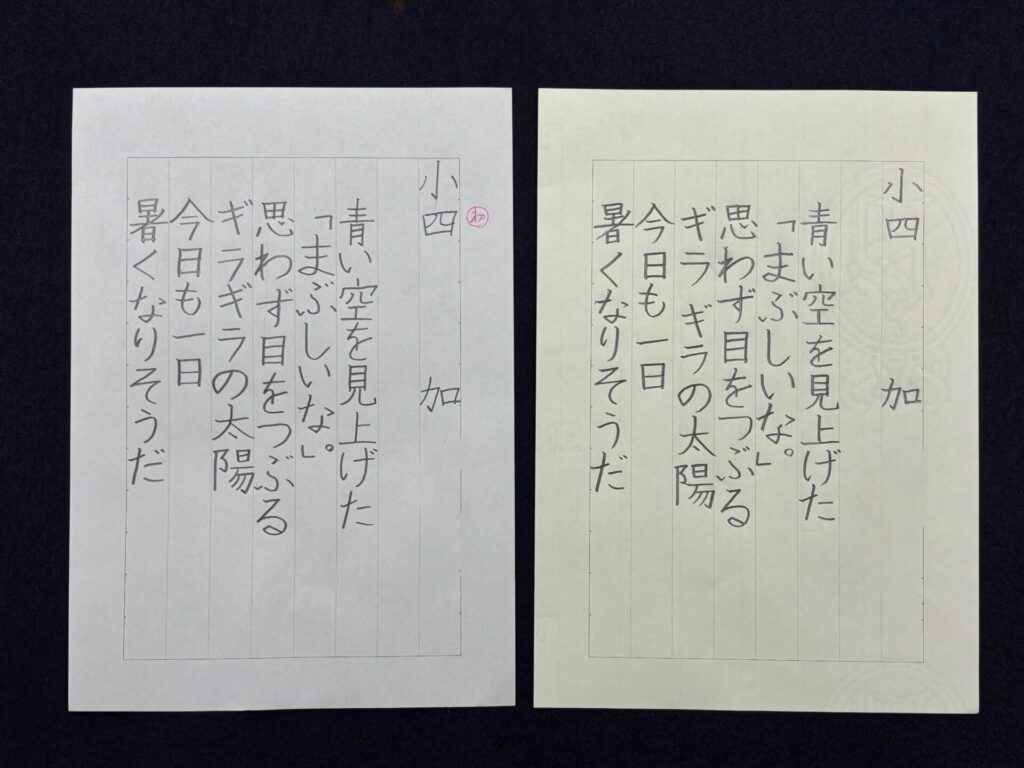 小四 加
青い空を見上げた
「まぶしいな。」
思わず目をつぶる
ギラギラの太陽
今日も一日
暑くなりそうだ
初
小四 加
青い空を見上げた
「まぶしいな。」
思わず目をつぶる
ギラギラの太陽
今日も一日
暑くなりそうだ